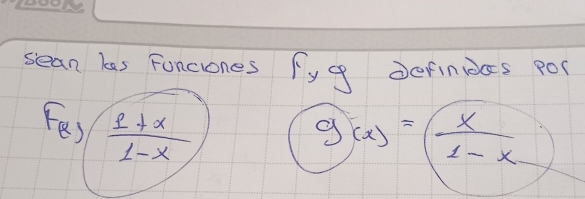 sean las funciones f y g definidas por
F(x) 1+x / 1-x g(x) = x / 1-x